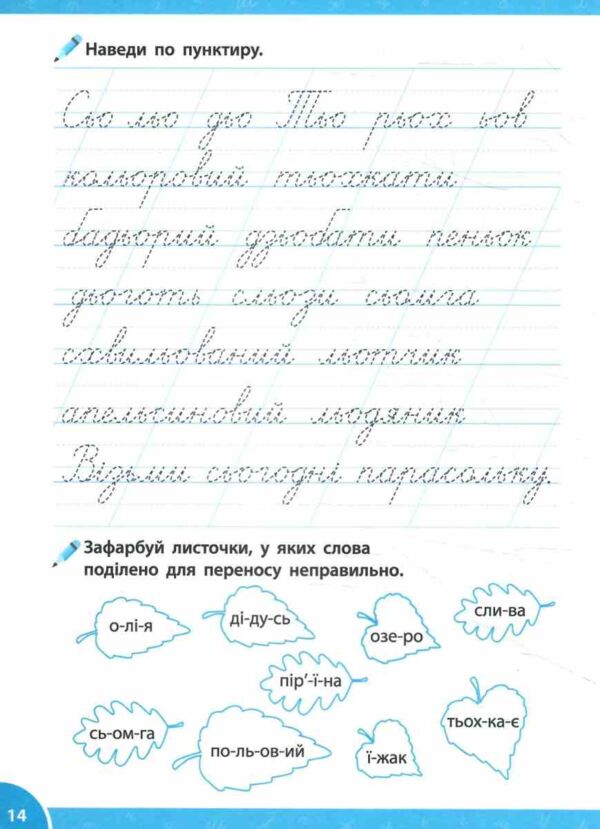 Наведи по пунктиру.
Сьо льо дьо Тьо рьох ьов
кольоровий тьохкати
бадьорий дзьобати пеньок
дьоготь сльози сьомга
схвильований льотчик
апельсиновий льодяник
Візьми сьогодні парасольку.
Зафарбуй листочки, у яких слова
поділено для переносу неправильно.
о-лі-я
ді-ду-сь
озе-ро
сли-ва
пір'-ї-на
сь-ом-га
по-ль-ов-ий
ї-жак
тьох-ка-є
14